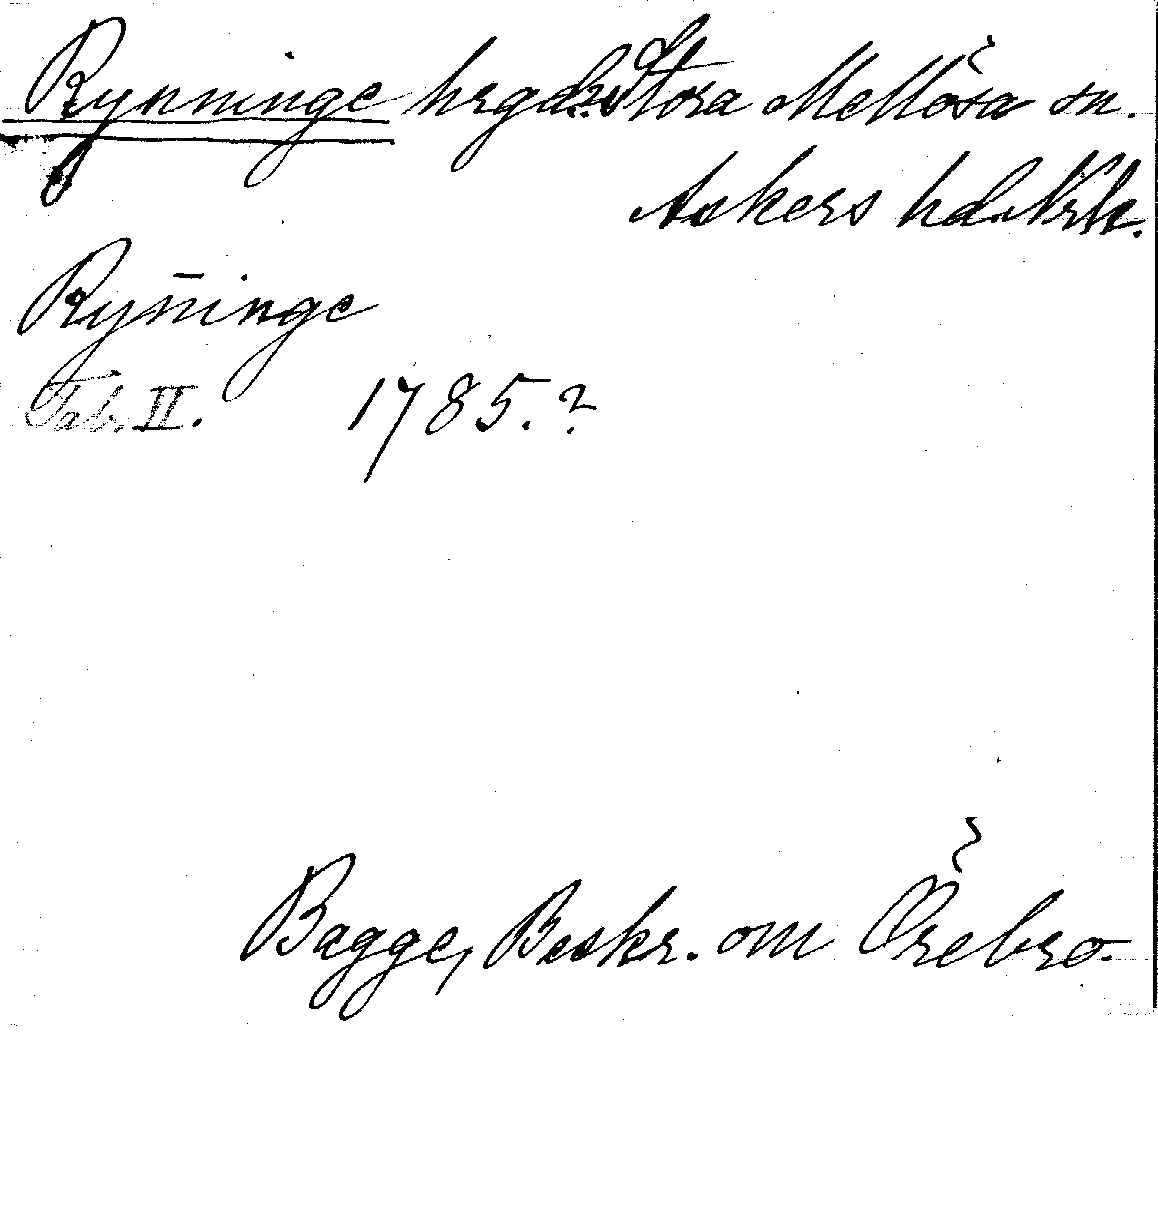 Rynninge hrgd Stora Mellösa sn.
Askers hd. Nrk.
Ryn̄inge
Tab. II. 1785.?
Bagge, Beskr. om Örebro.